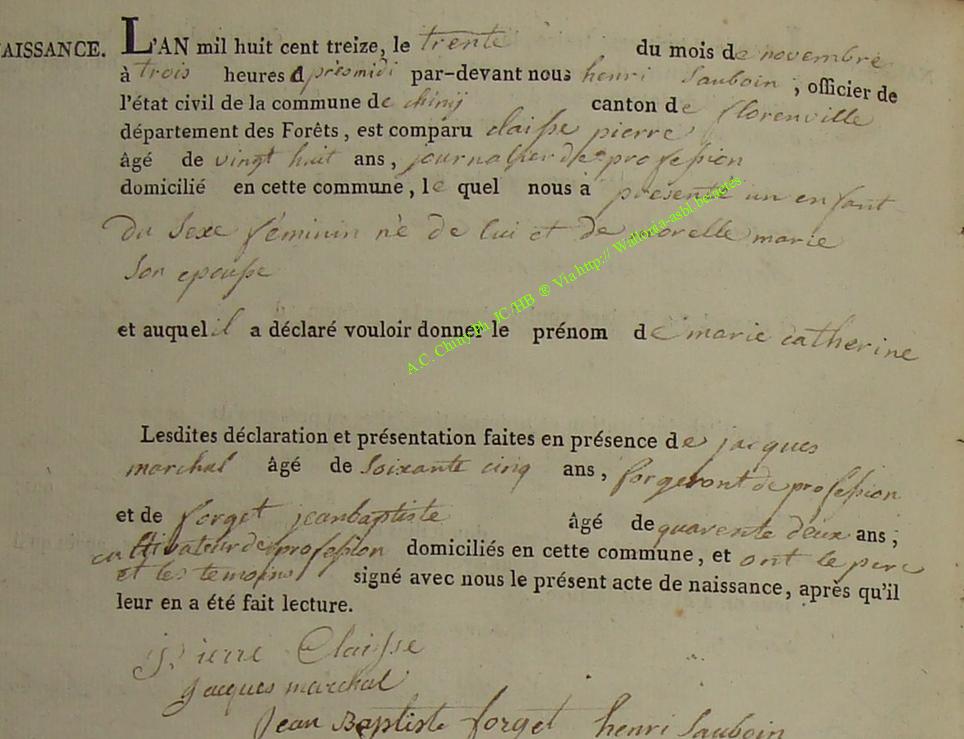 AISSANCE. L'AN mil huit cent treize, le trente du mois de novembre
à trois heures après midi par-devant nous henri Sauboin, officier de
l'état civil de la commune de chinij canton de florenville
département des Forêts, est comparu claisse pierre
âgé de vingt huit ans, journallier de profession
domicilié en cette commune, le quel nous a présenté un enfant
du Sexe féminin né de lui et de marie
Son epousse
et auquel il a déclaré vouloir donner le prénom de marie catherine
Lesdites déclaration et présentation faites en présence de jacques
marchal âgé de Soixante cinq ans, forgeront de profession
et de forget jeanbaptiste âgé de quarente deux ans,
cultivateur de profession domiciliés en cette commune, et ont le pere
et les temoins signé avec nous le présent acte de naissance, après qu'il
leur en a été fait lecture.
Pierre Claisse
jacques marchal
Jean Baptiste forget henri Sauboin
A.C. Chiny Ph. JC/HB ® Via http:// Wallonia-asbl.be/actes.